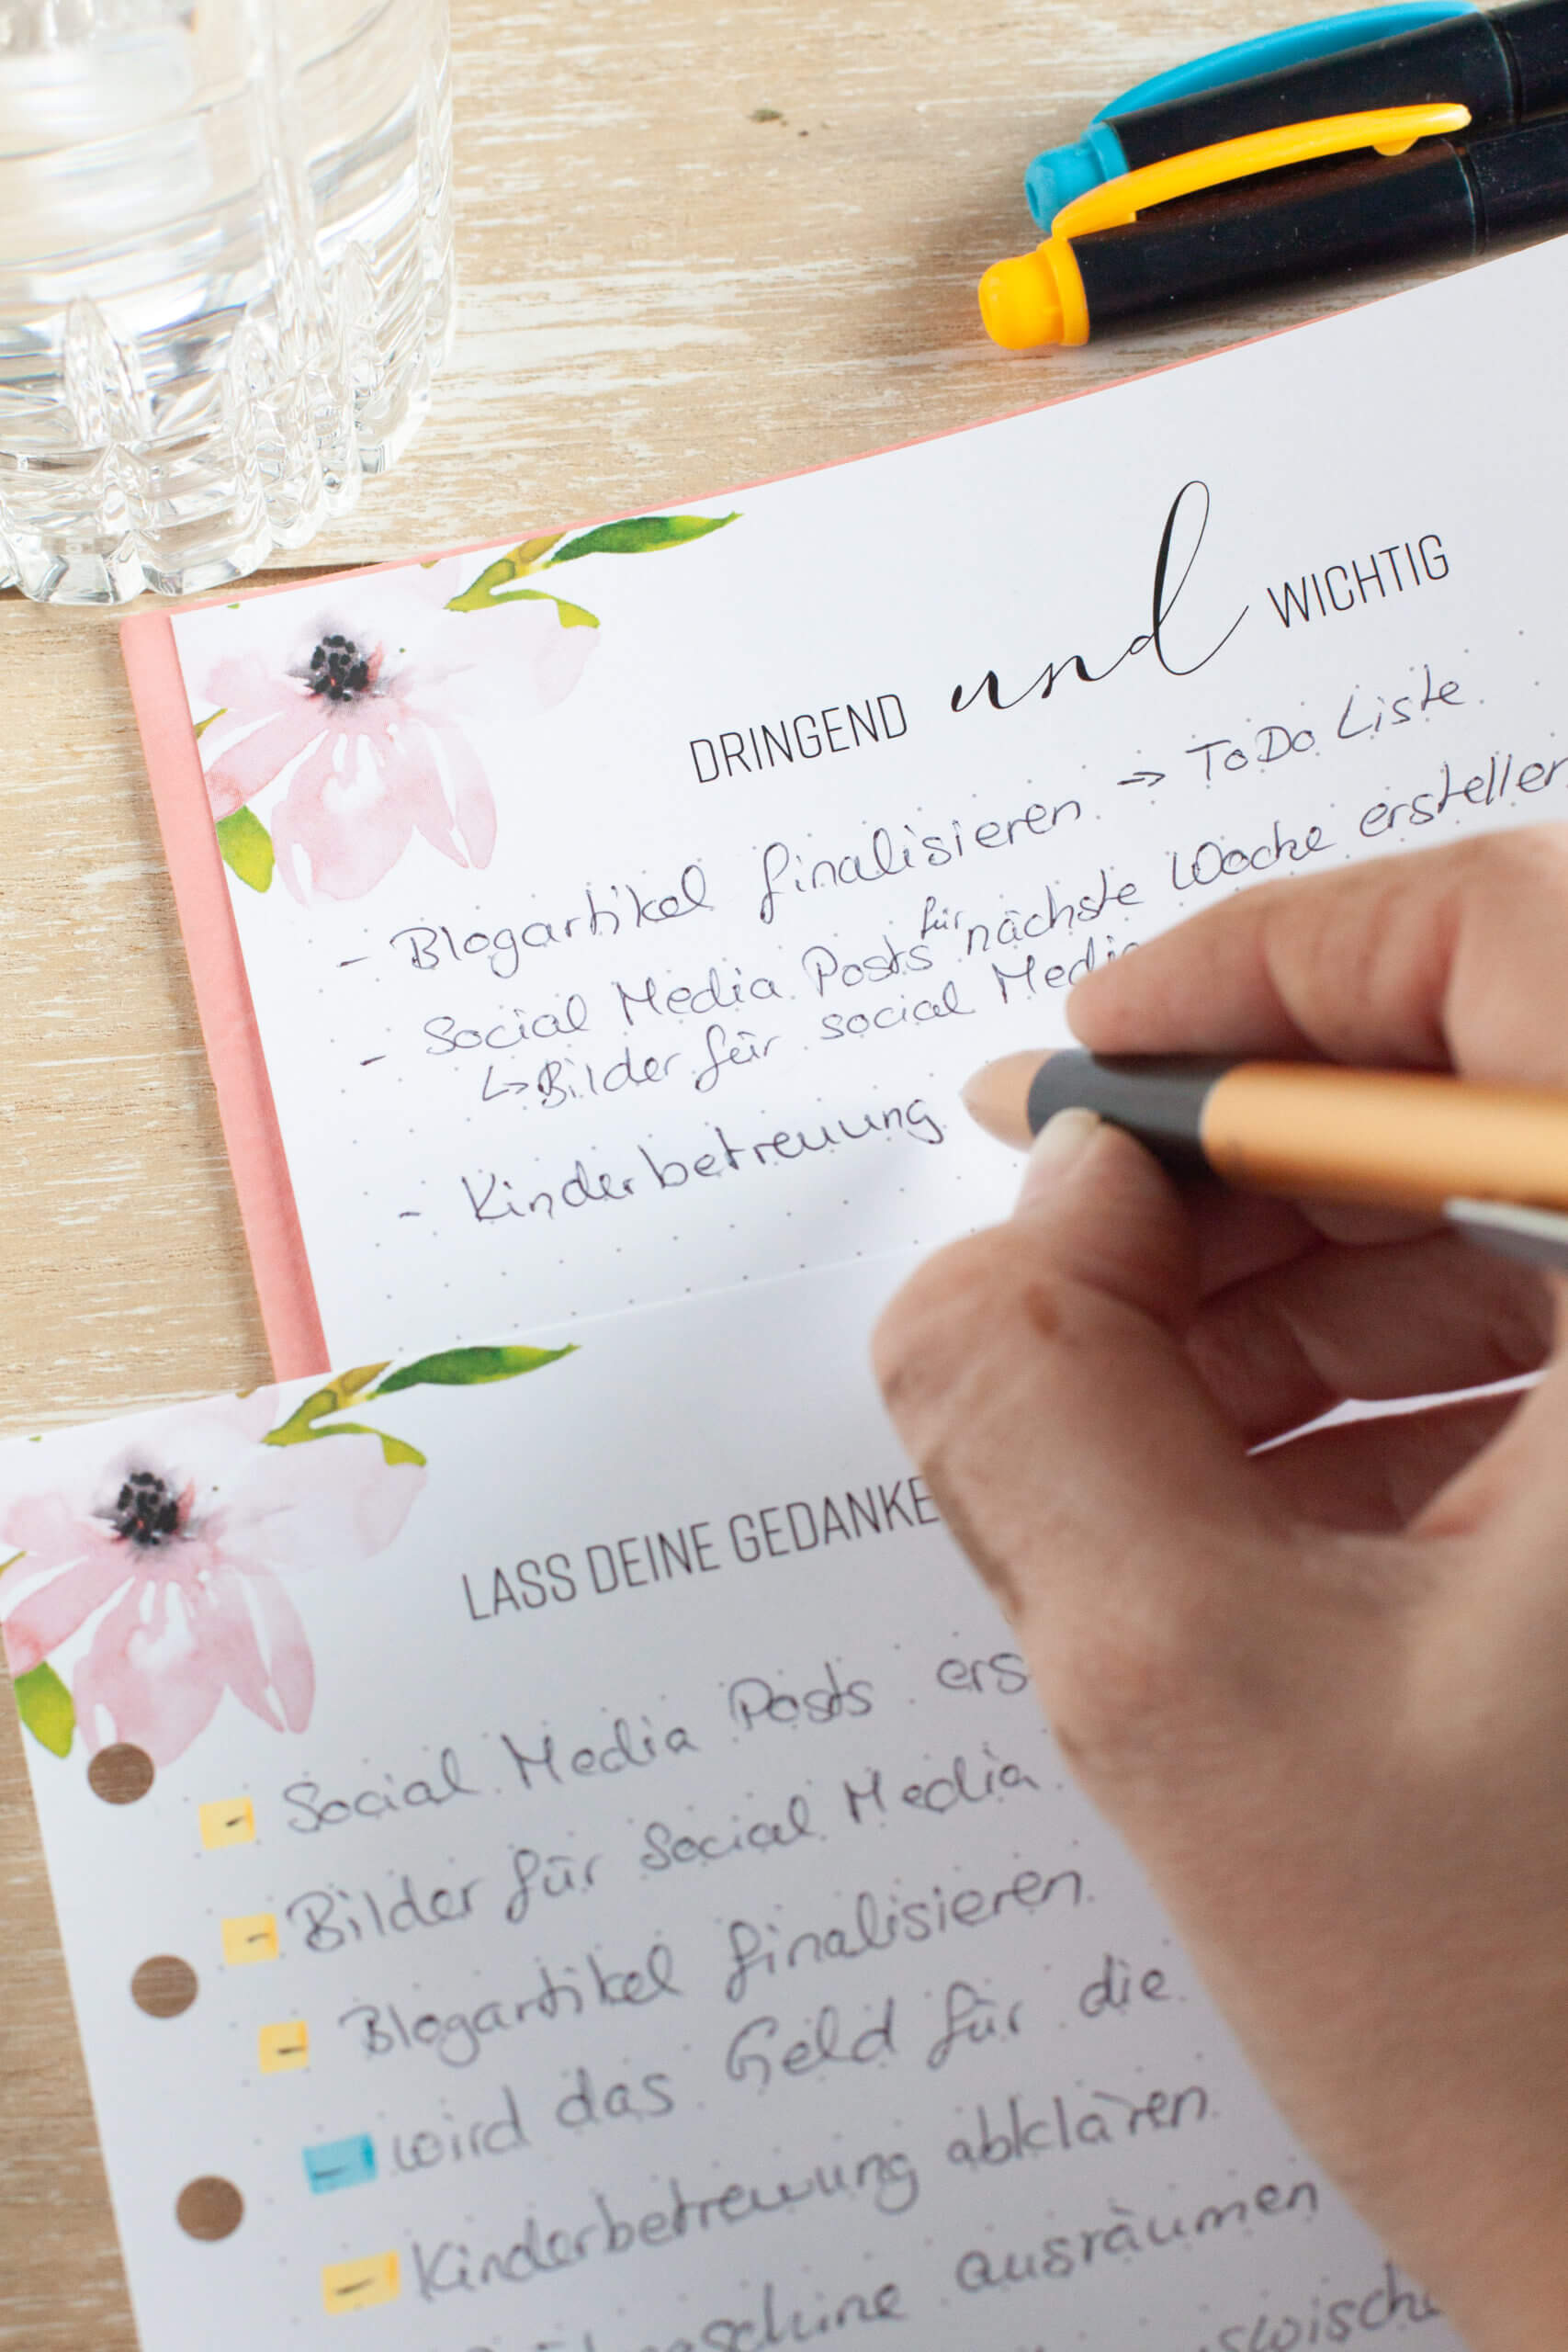 DRINGEND und WICHTIG
- Blogartikel finalisieren → ToDo Liste
- Social Media Posts für nächste Woche erstellen
↳ Bilder für social Media
- Kinderbetreuung
LASS DEINE GEDANKE
- Social Media Posts ers
- Bilder für Social Media
- Blogartikel finalisieren
- wird das Geld für die
- Kinderbetreuung abklären
ausräumen